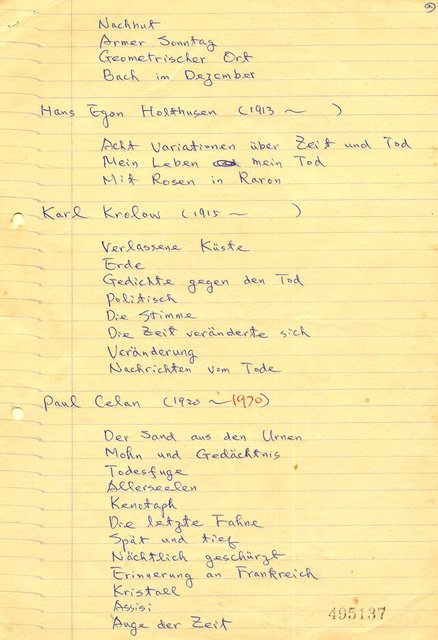 Nachhut
Armer Sonntag
Geometrischer Ort
Bach im Dezember
Hans Egon Holthusen (1913 ~ )
Acht Variationen über Zeit und Tod
Mein Leben mein Tod
Mit Rosen in Raron
Karl Krolow (1915 ~ )
Verlassene Küste
Erde
Gedichte gegen den Tod
Politisch
Die Stimme
Die Zeit veränderte sich
Veränderung
Nachrichten vom Tode
Paul Celan (1920 ~ 1970)
Der Sand aus den Urnen
Mohn und Gedächtnis
Todesfuge
Allerseelen
Kenotaph
Die letzte Fahne
Spät und tief
Nächtlich geschürzt
Erinnerung an Frankreich
Kristall
Assisi
Auge der Zeit
495137